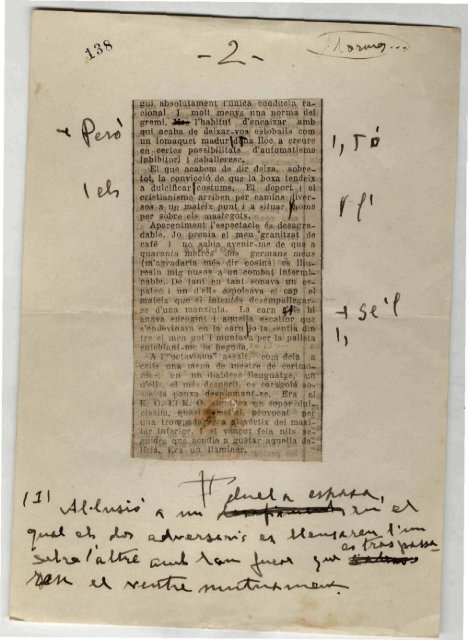 138
- 2 -
gui absolutament l'única conducta ra-
cional i molt menys una norma del
gremi. l'habitut d'encaixar amb
qui acaba de deixar-vos estobaills com
un tomaquet madur lloc a creure
en certes possibilitats d'automatisme
inhibitori i caballeresc.
El que acabem de dir deixa, sobre-
tot, la convicció de que la boxa tendeix
a dulcificar costums. El deport i el
cristianisme arriben per camins diver-
sos a un mateix punt i a situar home
per sobre els mastegots.
Aparentment l'espectacle és desagra-
dable. Jo prenia el meu granitzat de
café i no sabia avenir-me de que a
quaranta metres dos germans meus
(m'agradaria més dir cosins) es lliu-
resin mig nusos a un combat intermi-
nable. De tant en tant sonava un es-
patec i un d'ells espolsava el cap el
mateix que si intentés desempallegar-
se d'una manxiula. La carn els hi
anava encegint i aquella escalfor que
s'endevinava en la carn jo la sentia din-
tre el meu got i muntava per la palleta
entebiant-me la beguda.
A l'"octaviano" assalt, com deia a
crits una mena de mestre de cerimo-
nies en un diabòlec llenguatge, un
d'ells, el més desparit, es
panxa desplomant-se. Era el
K. O. El K. O.
provocat per
una al vèrtix del maxi-
lar inferior. I el vençut feia uits se-
que acudia a gustar aquella de-
licia. Era un llaminer.
Però
, tó
els
l'
se'l
,
(1) Al·lusió a un duel a espasa, en el
qual els dos adversaris es llençaren l'un
sobre l'altre amb tan furor que es traspassa-
ren el ventre mutuament.